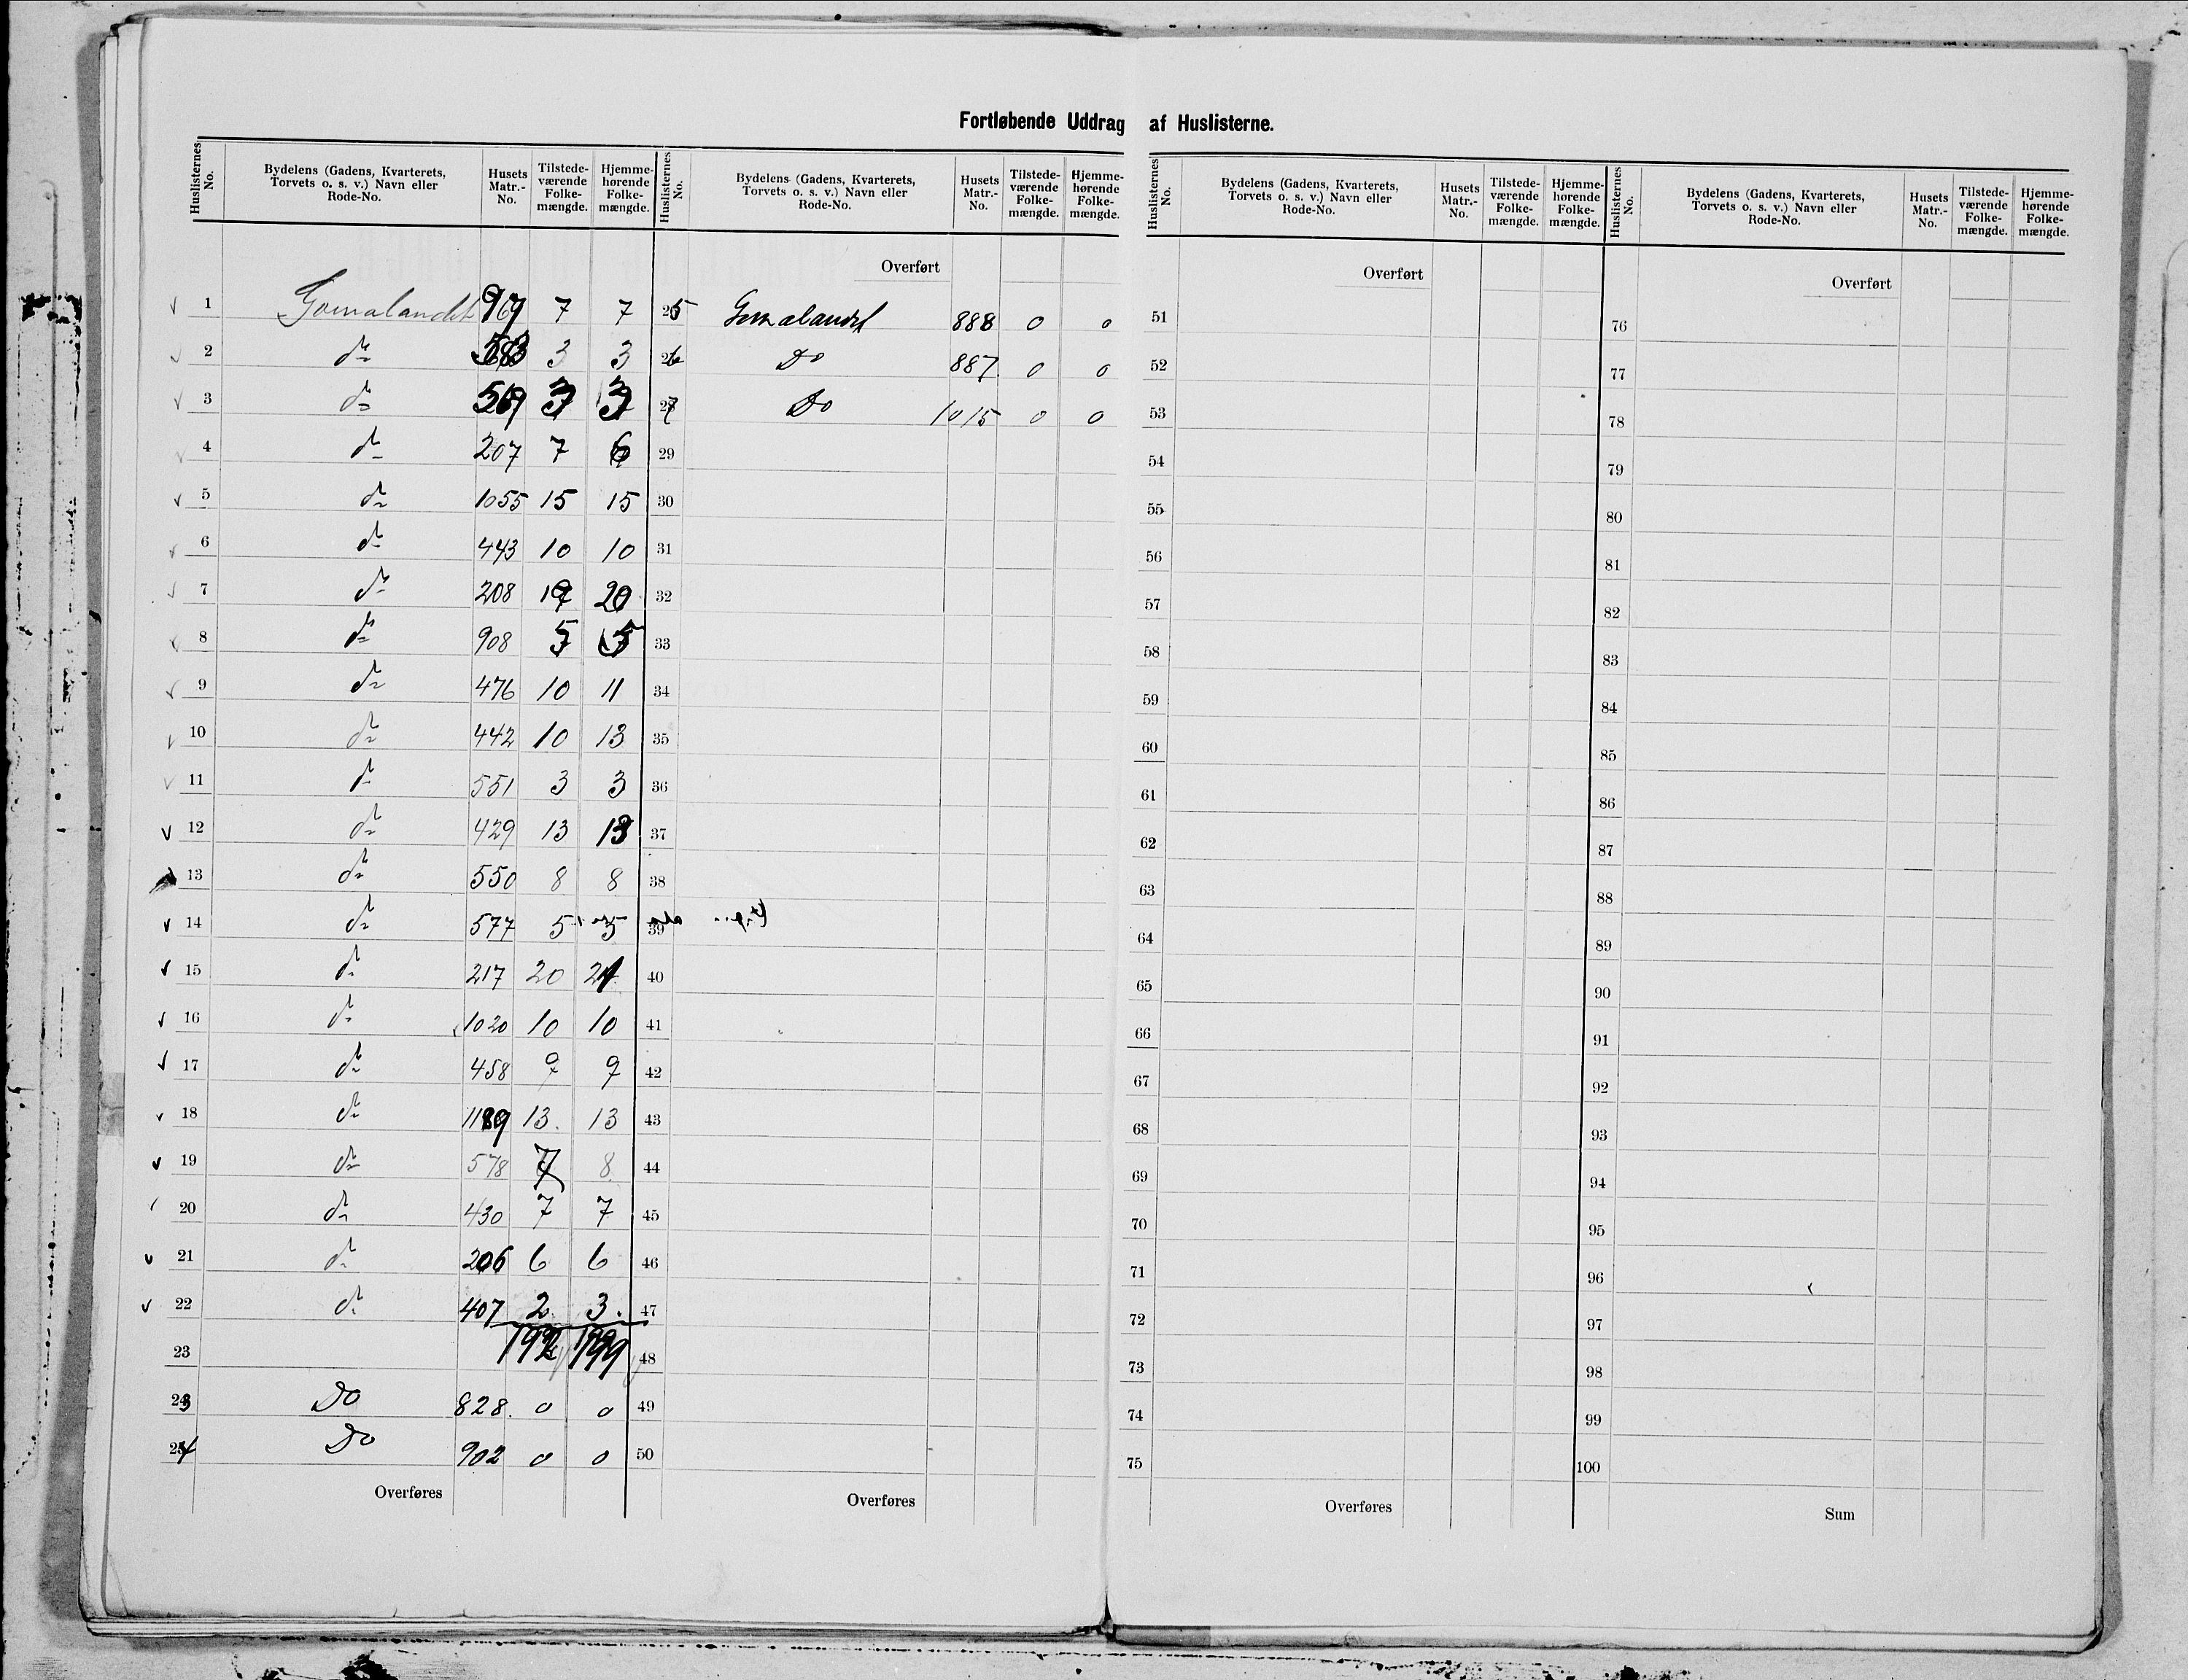 Fortløbende Uddrag af Huslisterne.
Huslisternes No. Bydelens (Gadens, Kvarterets, Torvets o. s. v.) Navn eller Rode-No. Husets Matr.-No. Tilstede-værende Folke-mængde. Hjemme-hørende Folke-mængde.
Huslisternes No. Bydelens (Gadens, Kvarterets, Torvets o. s. v.) Navn eller Rode-No. Husets Matr.-No. Tilstede-værende Folke-mængde. Hjemme-hørende Folke-mængde.
Huslisternes No. Bydelens (Gadens, Kvarterets, Torvets o. s. v.) Navn eller Rode-No. Husets Matr.-No. Tilstede-værende Folke-mængde. Hjemme-hørende Folke-mængde.
Huslisternes No. Bydelens (Gadens, Kvarterets, Torvets o. s. v.) Navn eller Rode-No. Husets Matr.-No. Tilstede-værende Folke-mængde. Hjemme-hørende Folke-mængde.
1 Gomalandet 969 7 7
2 do 583 3 3
3 do 569 3 3
4 do 207 7 6
5 do 1055 15 15
6 do 443 10 10
7 do 208 19 20
8 do 908 5 5
9 do 476 10 11
10 do 442 10 13
11 do 551 3 3
12 do 429 13 13
13 do 550 8 8
14 do 577 5 5
15 do 217 20 21
16 do 1020 10 10
17 do 458 9 9
18 do 1189 13. 13
19 do 578 7 8
20 do 430 7 7
21 do 206 6 6
22 do 407 2. 3.
23 192 199
23 Do 828. 0 0
24 Do 902 0 0
Overføres
Overført
25 Gomalandet 888 0 0
26 Do 887 0 0
27 Do 1015 0 0
29
30
31
32
33
34
35
36
37
38
39
40
41
42
43
44
45
46
47
48
49
50
Overføres
Overført
51
52
53
54
55
56
57
58
59
60
61
62
63
64
65
66
67
68
69
70
71
72
73
74
75
Overføres
Overført
76
77
78
79
80
81
82
83
84
85
86
87
88
89
90
91
92
93
94
95
96
97
98
99
100
Sum